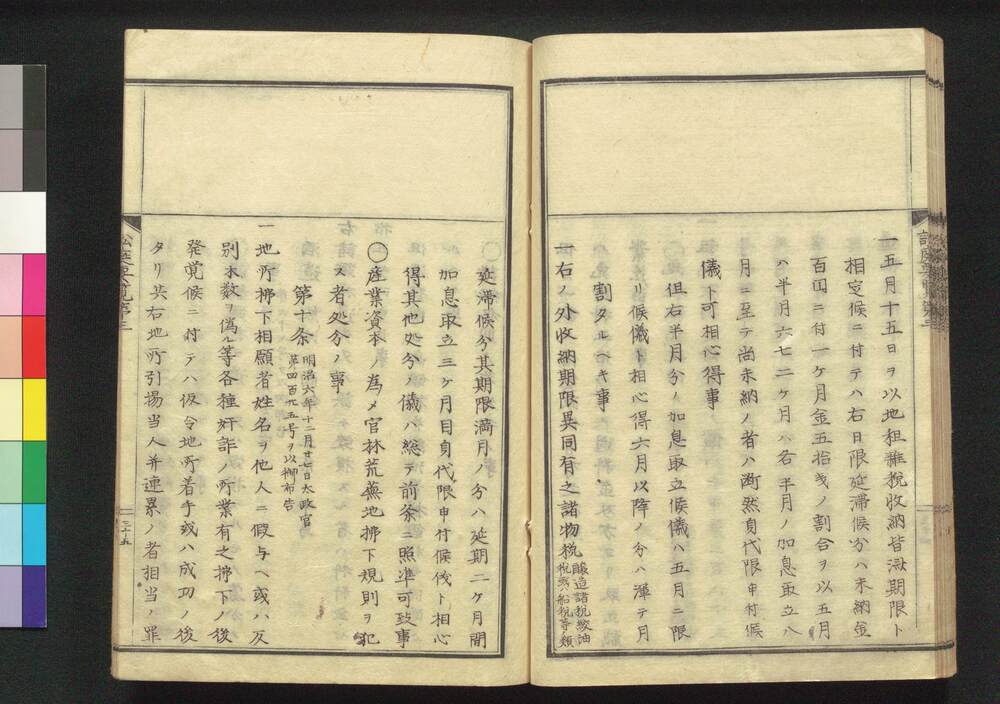 一五月十五日ヲ以地租雑税収納皆済期限ト
相定候ニ付テハ右日限延滞候分ハ未納金
百円ニ付一ヶ月金五拾銭ノ割合ヲ以五月
ハ半月六七二ヶ月ハ各半月ノ加息取立八
月ニ至テ尚未納ノ者ハ断然身代限申付候
儀ト可相心得事
但右半月分ノ加息取立候儀ハ五月ニ限
リ候儀ト相心得六月以降ノ分ハ渾テ月
割タルヘキ事
一右ノ外収納期限異同有之諸物税醸造諸税絞油
税然ハ船税等ノ類
延滞候分其期限満月ノ分ハ延期二ヶ月間
加息取立三ヶ月目身代限申付候儀ト相心
得其他処分ノ儀ハ総テ前条ニ照準可致事
○産業資本ノ為メ官林荒蕪地払下規則ヲ犯
ス者処分ノ事
第十条 明治六年十二月廿七日太政官
第四百廿五号ヲ以御布告
一地所払下相願者姓名ヲ他人ニ假与ヘ或ハ反
別本数ヲ偽ル等各種奸詐ノ所業有之払下ノ後
発覚候ニ付テハ仮令地所着手或ハ成功ノ後
タリ共右地所引揚当人并連累ノ者相当ノ罪
三十五